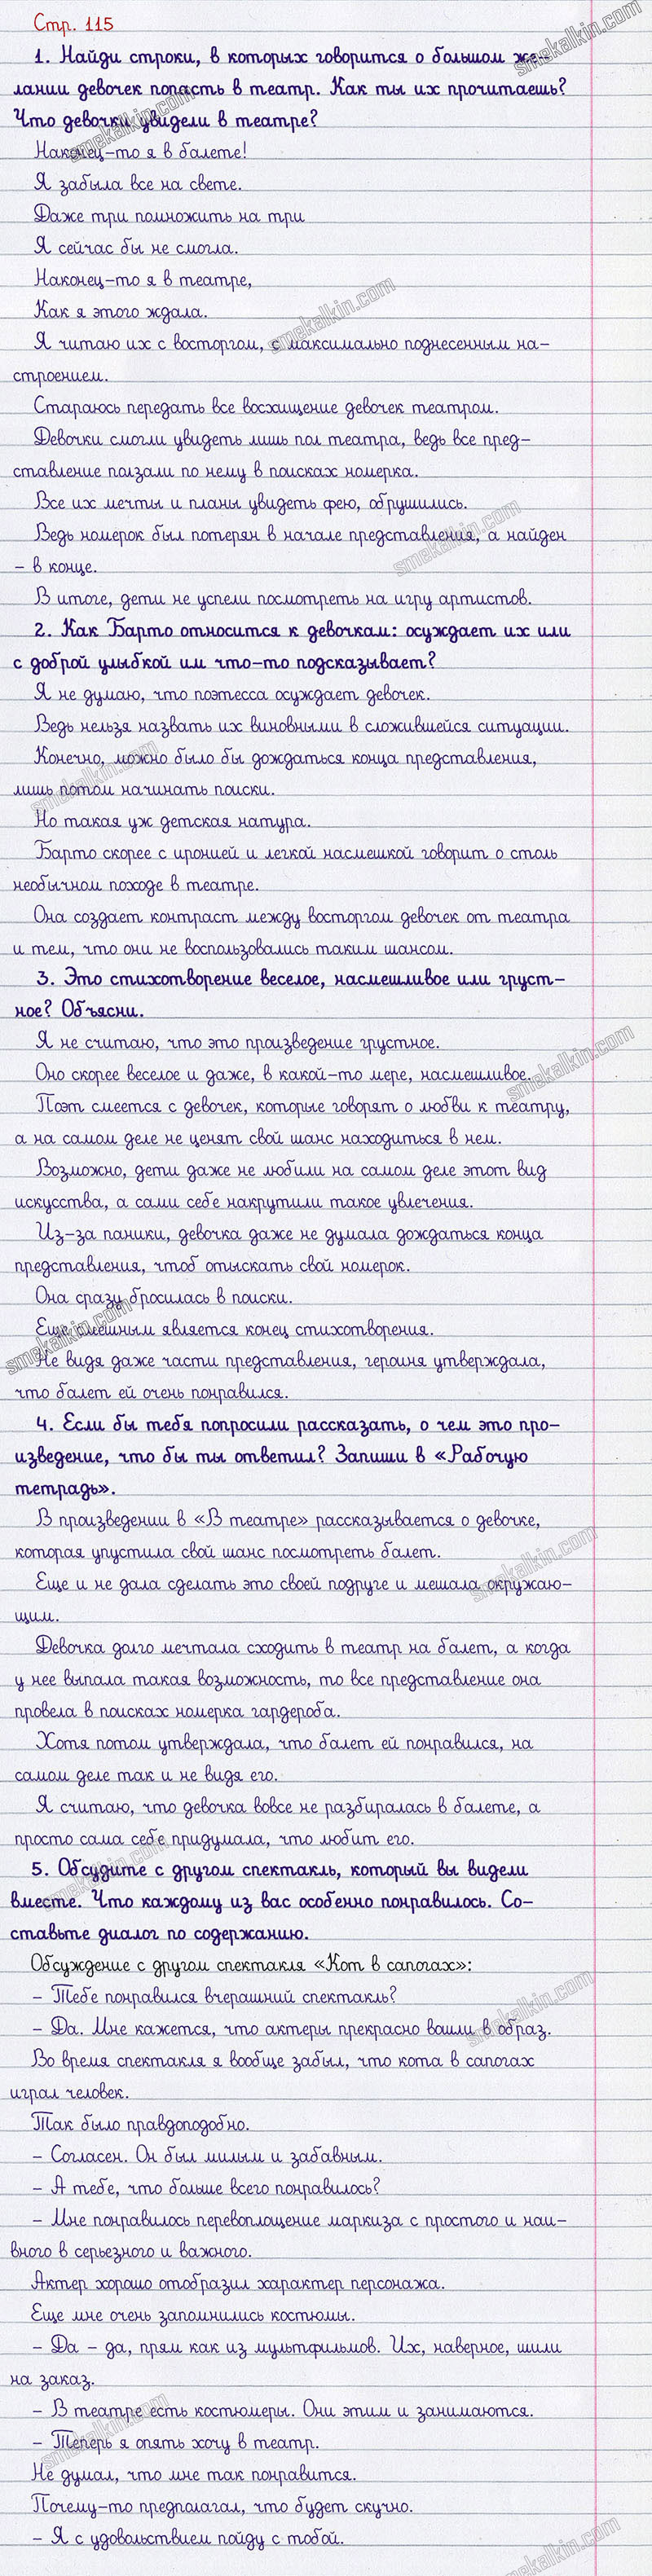 Стр. 115
1. Найди строки, в которых говорится о большом же-
лании девочек попасть в театр. Как ты их прочитаешь?
Что девочки увидели в театре?
Наконец-то я в балете!
Я забыла все на свете.
Даже три помножить на три
Я сейчас бы не смогла.
Наконец-то я в театре,
Как я этого ждала.
Я читаю их с восторгом, с максимально поднесенным на-
строением.
Стараюсь передать все восхищение девочек театром.
Девочки смогли увидеть лишь пол театра, ведь все пред-
ставление ползали по нему в поисках номерка.
Все их мечты и планы увидеть фею, обрушились.
Ведь номерок был потерян в начале представления, а найден
- в конце.
В итоге, дети не успели посмотреть на игру артистов.
2. Как Барто относится к девочкам: осуждает их или
с доброй улыбкой им что-то подсказывает?
Я не думаю, что поэтесса осуждает девочек.
Ведь нельзя назвать их виновными в сложившейся ситуации.
Конечно, можно было бы дождаться конца представления,
лишь потом начинать поиски.
Но такая уж детская натура.
Барто скорее с иронией и легкой насмешкой говорит о столь
необычном походе в театре.
Она создает контраст между восторгом девочек от театра
и тем, что они не воспользовались таким шансом.
3. Это стихотворение веселое, насмешливое или груст-
ное? Объясни.
Я не считаю, что это произведение грустное.
Оно скорее веселое и даже, в какой-то мере, насмешливое.
Поэт смеется с девочек, которые говорят о любви к театру,
а на самом деле не ценят свой шанс находиться в нем.
Возможно, дети даже не любили на самом деле этот вид
искусства, а сами себе накрутили такое увлечения.
Из-за паники, девочка даже не думала дождаться конца
представления, чтоб отыскать свой номерок.
Она сразу бросилась в поиски.
Еще смешным является конец стихотворения.
Не видя даже части представления, героиня утверждала,
что балет ей очень понравился.
4. Если бы тебя попросили рассказать, о чем это про-
изведение, что бы ты ответил? Запиши в «Рабочую
тетрадь».
В произведении в «В театре» рассказывается о девочке,
которая упустила свой шанс посмотреть балет.
Еще и не дала сделать это своей подруге и мешала окружаю-
щим.
Девочка долго мечтала сходить в театр на балет, а когда
у нее выпала такая возможность, то все представление она
провела в поисках номерка гардероба.
Хотя потом утверждала, что балет ей понравился, на
самом деле так и не видя его.
Я считаю, что девочка вовсе не разбиралась в балете, а
просто сама себе придумала, что любит его.
5. Обсудите с другом спектакль, который вы видели
вместе. Что каждому из вас особенно понравилось. Со-
ставьте диалог по содержанию.
Обсуждение с другом спектакля «Кот в сапогах»:
- Тебе понравился вчерашний спектакль?
- Да. Мне кажется, что актеры прекрасно вошли в образ.
Во время спектакля я вообще забыл, что кота в сапогах
играл человек.
Так было правдоподобно.
- Согласен. Он был милым и забавным.
- А тебе, что больше всего понравилось?
- Мне понравилось перевоплощение маркиза с простого и наи-
вного в серьезного и важного.
Актер хорошо отобразил характер персонажа.
Еще мне очень запомнились костюмы.
- Да - да, прям как из мультфильмов. Их, наверное, шили
на заказ.
- В театре есть костюмеры. Они этим и занимаются.
- Теперь я опять хочу в театр.
Не думал, что мне так понравится.
Почему-то предполагал, что будет скучно.
- Я с удовольствием пойду с тобой.
smekalkin.com
smekalkin.com
smekalkin.com
smekalkin.com
smekalkin.com
smekalkin.com
smekalkin.com
smekalkin.com
smekalkin.com
smekalkin.com
smekalkin.com
smekalkin.com